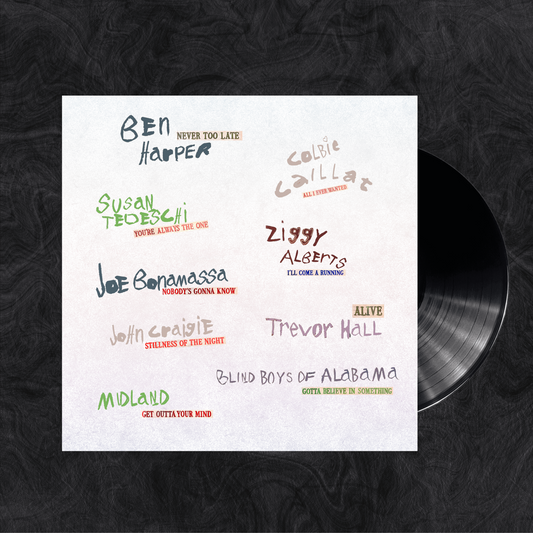 BEN
HARPER
NEVER TOO LATE
SUSAN
TEDESCHI
YOU'RE ALWAYS THE ONE
JOE BONAMASSA
NOBODY'S GONNA KNOW
JOHN CRAIGIE
STILLNESS OF THE NIGHT
MIDLAND
GET OUTTA YOUR MIND
COLBIE
CAILLAT
ALL I EVER WANTED
ZIGGY
ALBERTS
I'LL COME A RUNNING
ALIVE
TREVOR HALL
BLIND BOYS OF ALABAMA
GOTTA BELIEVE IN SOMETHING